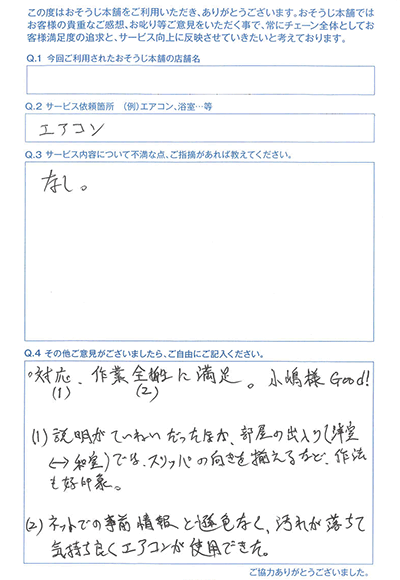 この度はおそうじ本舗をご利用いただき、ありがとうございます。おそうじ本舗では
お客様の貴重なご感想、お叱り等ご意見をいただく事で、常にチェーン全体としてお
客様満足度の追求と、サービス向上に反映させていきたいと考えております。
Q.1 今回ご利用されたおそうじ本舗の店舗名
Q.2 サービス依頼箇所 (例)エアコン、浴室…等
エアコン
Q.3 サービス内容について不満な点、ご指摘があれば教えてください。
なし。
Q.4 その他ご意見がございましたら、ご自由にご記入ください。
○対応、作業全般に満足。小嶋様Good!
(1) (2)
(1) 説明がていねいだったほか、部屋の出入り(洋室
↔和室)では、スリッパの向きを揃えるなど、作法
も好印象。
(2) ネットでの事前情報と遜色なく、汚れが落ちて
気持ち良くエアコンが使用できた。
ご協力ありがとうございました。